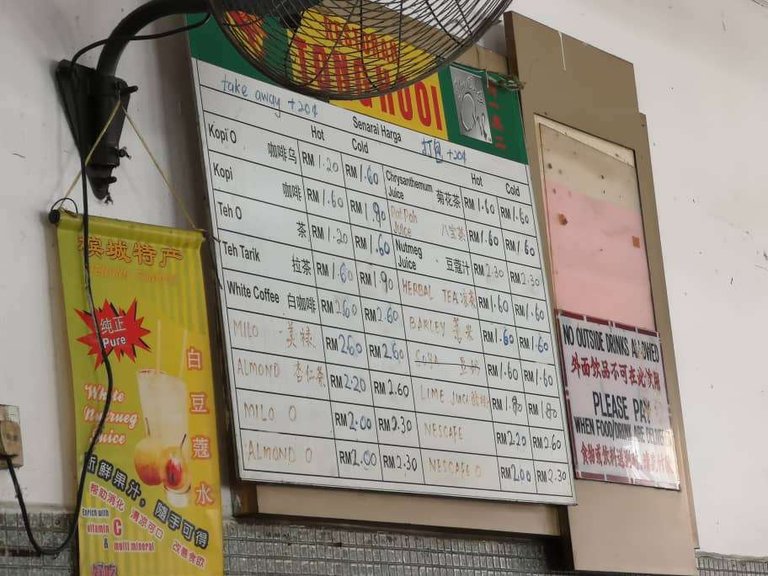 take away +20¢
Senarai Harga
打包 +20¢
Hot Cold Hot Cold
Kopi O 咖啡乌 RM 1.20 RM 1.60 Chrysanthemum Juice 菊花茶 RM 1.60 RM 1.60
Kopi 咖啡 RM 1.60 RM 1.90 Pat Poh Juice 八宝茶 RM 1.60 RM 1.60
Teh O 茶 RM 1.20 RM 1.60 Nutmeg Juice 豆蔻汁 RM 2.30 RM 2.30
Teh Tarik 拉茶 RM 1.60 RM 1.90 HERBAL TEA RM 1.60 RM 1.60
White Coffee 白咖啡 RM 2.60 RM 2.60 BARLEY 薏米 RM 1.60 RM 1.60
MILO 美禄 RM 2.60 RM 2.60 RM 1.60 RM 1.60
ALMOND 杏仁茶 RM 2.20 RM 2.60 LIME JUICE RM 1.90 RM 1.90
MILO O RM 2.00 RM 2.30 NESCAFE RM 2.20 RM 2.60
ALMOND O RM 2.00 RM 2.30 NESCAFE O RM 2.00 RM 2.30
槟城特产
纯正
Pure
White
Nutmeg
Juice
白豆蔻水
新鲜果汁，随手可得
帮助消化 清凉可口 改善食欲
Enrich with
vitamin C
& multi mineral
NO OUTSIDE DRINKS ALLOWED
外面饮品不可在此饮用
PLEASE PAY
WHEN FOOD/DRINK ARE